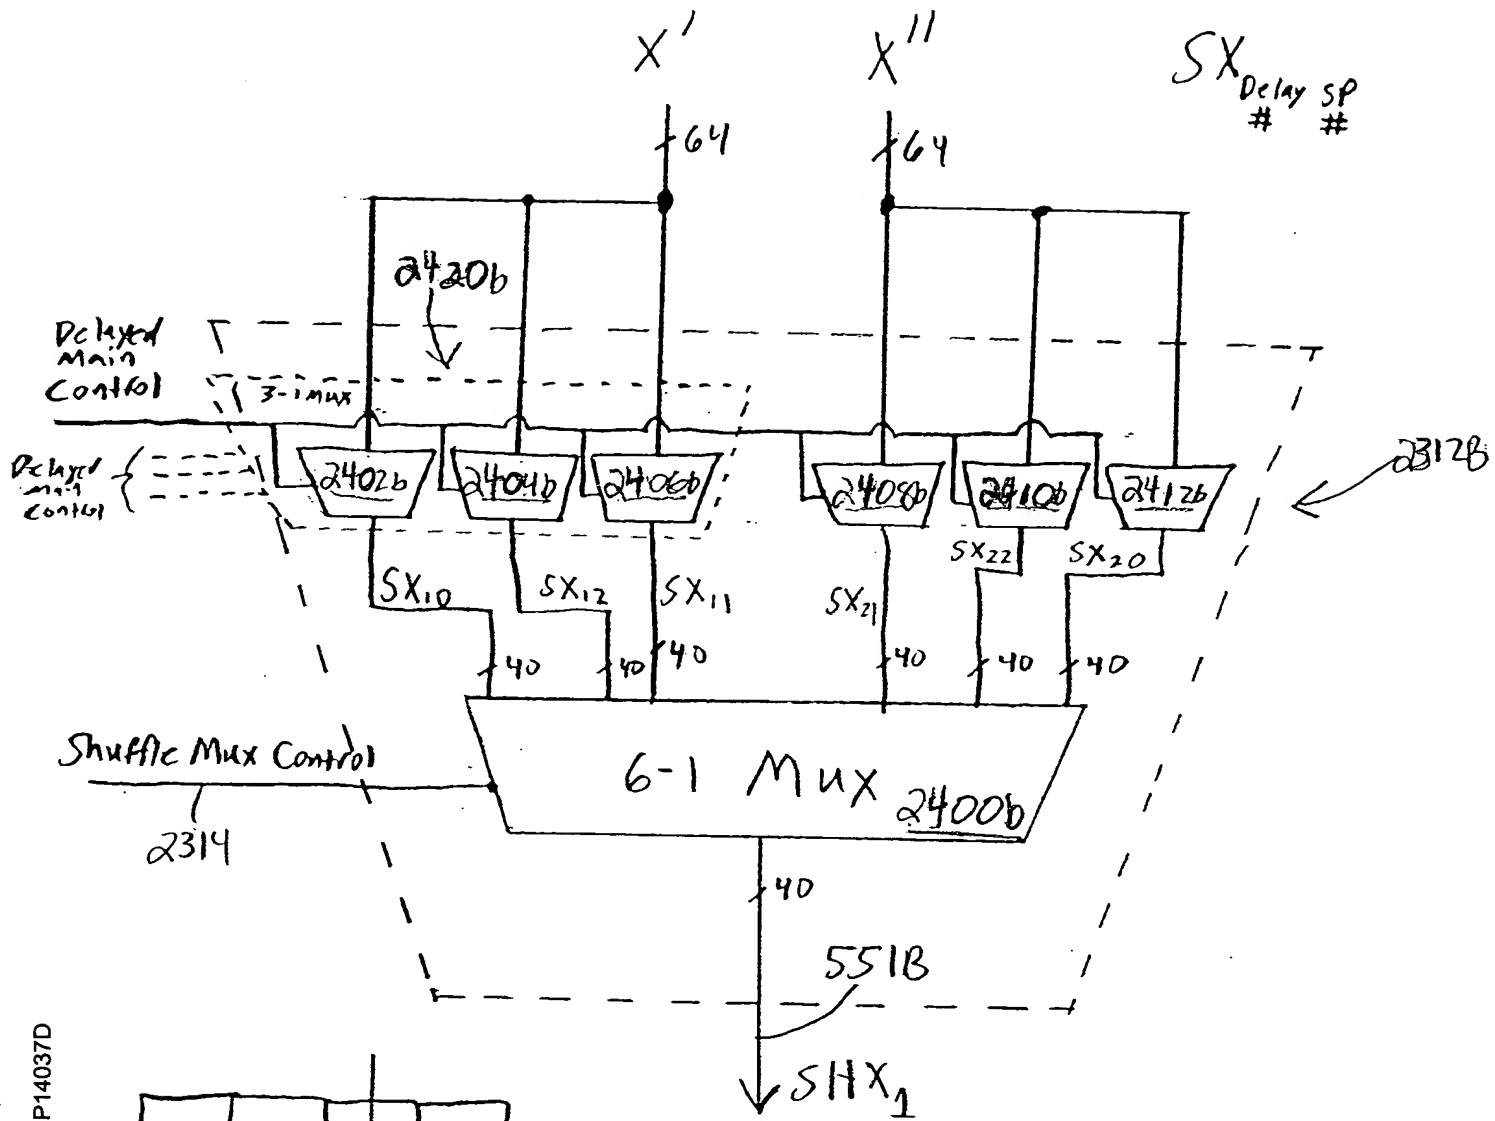 X' X'' SX Delay # SP #
64 64
2420b
Delayed Main Control
3-1 Mux
Delayed Main Control
2402b 2404b 2406b 2408b 2410b 2412b
2312B
SX10 SX12 SX11 SX21 SX22 SX20
40 40 40 40 40 40
Shuffle Mux Control
6-1 Mux 2400b
2314
40
551B
SHX1
P14037D